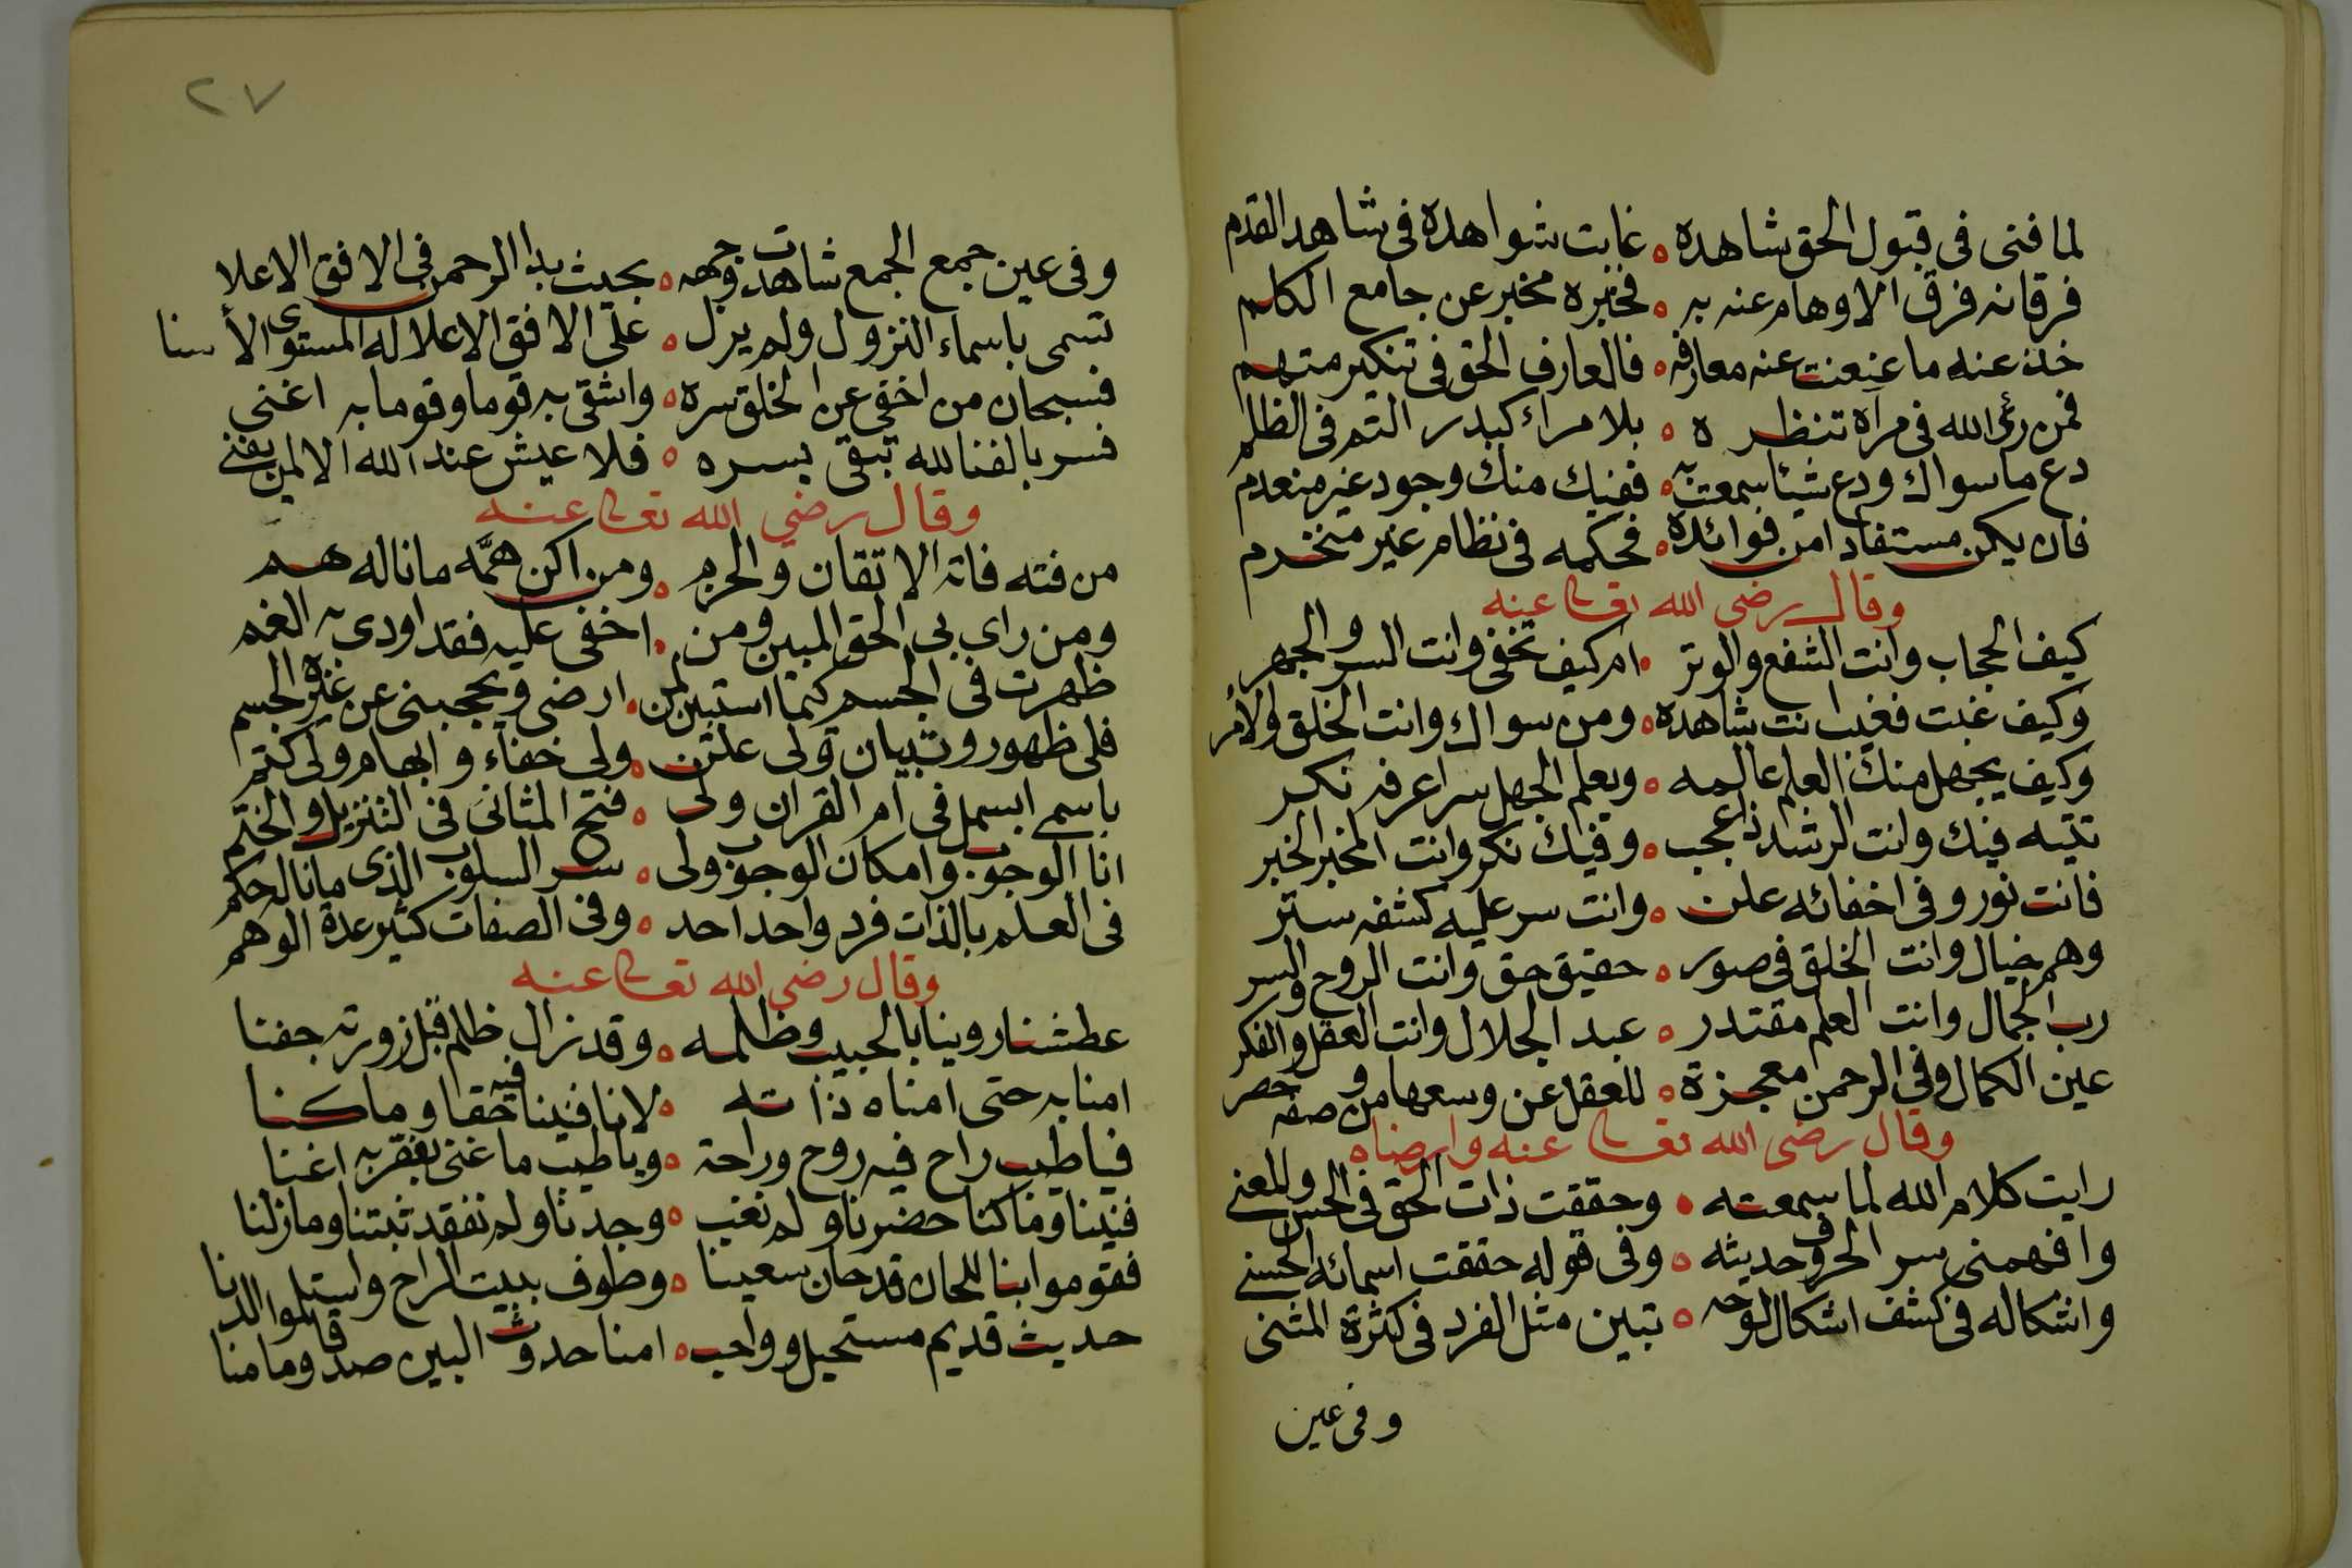 لما فنى فى قبول الحق شاهده ه غابت شواهده فى شاهد القدم
فرقانه فرق الاوهام عنه به ه فخبره مخبر عن جامع الكلم
خذ عنه ما عنعنت عنه معارفه ه فالعارف الحق فى تنكير متهم
فمن رئ الله فى مرآة تنظره ه بلا مراء كبدر التم فى الظلم
دع ما سواك ودع شيئا سمعت به ه ففيك منك وجود غير منعدم
فان يكن مستفادا من فوائده ه فحكمه فى نظام غير منخرم
وقال رضى الله تعالى عنه
كيف الحجاب وانت الشفع والوتر ه ام كيف تخفى وانت السر والجهر
وكيف غبت فغيب انت شاهده ه ومن سواك وانت الخلق والأمر
وكيف يجهل منك العلم عالمه ه ويعلم الجهل سرا عرفه نكر
تتيه فيك وانت الرشد ذا عجب ه وفيك نكر وانت المخبر الخبر
فانت نور وفى اخفائه علن ه وانت سر عليه كشفه ستر
وهم خيال وانت الخلق فى صور ه حقيق حق وانت الروح والسر
رب الجمال وانت العلم مقتدر ه عبد الجلال وانت العقل والفكر
عين الكمال وفى الرحمن معجزة ه للعقل عن وسعها من وصفه حصر
وقال رضى الله تعالى عنه وارضاه
رايت كلام الله لما سمعته ه وحققت ذات الحق فى الحس والمعنى
وافهمنى سر الحروف حديثه ه وفى قوله حققت اسمائه الحسنى
واشكاله فى كشف اشكال لوحه ه تبين مثل الفرد فى كثرة المثنى
وفى عين
٢٧
وفى عين جمع الجمع شاهدت وجهه ه بحيث بدا الرحمن فى الافق الاعلا
تسمى باسماء النزول ولم يزل ه على الافق الاعلا له المستوى الأسنا
فسبحان من اخفى عن الخلق سره ه واشقى به قوما وقوما به اغنى
فسر بالفنا لله تبقى بسره ه فلا عيش عند الله الا لمن يفنى
وقال رضي الله تعالى عنه
من فته فاته الاتقان والحزم ه ومن اكن همّه ما ناله هم
ومن راى بى الحق المبين ومن ه اخفى عليه فقد اودى به الغم
ظهرت فى الجسم كيما استبين لمن ه ارضى ويحجبنى عن غيره الجسم
فلى ظهور وتبيان ولى علن ه ولى خفاء وابهام ولى كتم
باسمى ابسمل فى ام القران ولى ه فتح المثانى فى التنزيل والختم
انا الوجوب وامكان الوجوب ولى ه سر السلوب الذى ما ناله حكم
فى العلم بالذات فرد واحد احد ه وفى الصفات كثير عده الوهم
وقال رضى الله تعالى عنه
عطشنا روينا بالحبيب وظلمه ه وقد زال ظلم قبل زورته جفنا
امنا به حتى امناه ذاته ه لانا فنينا فيه حقا وما كنا
فيا طيب راح فيه روح وراحة ه ويا طيب ما غنى بفقر به اغنا
فنينا وما كنا حضرنا ولم نغب ه وجدنا ولم نفقد ثبتنا وما زلنا
فقوموا بنا للحان قد حان سعينا ه وطوف ببيت الراح واستلموا الدنا
حديث قديم مستحيل وواجب ه امنا حدوث البين صدقا وما منا